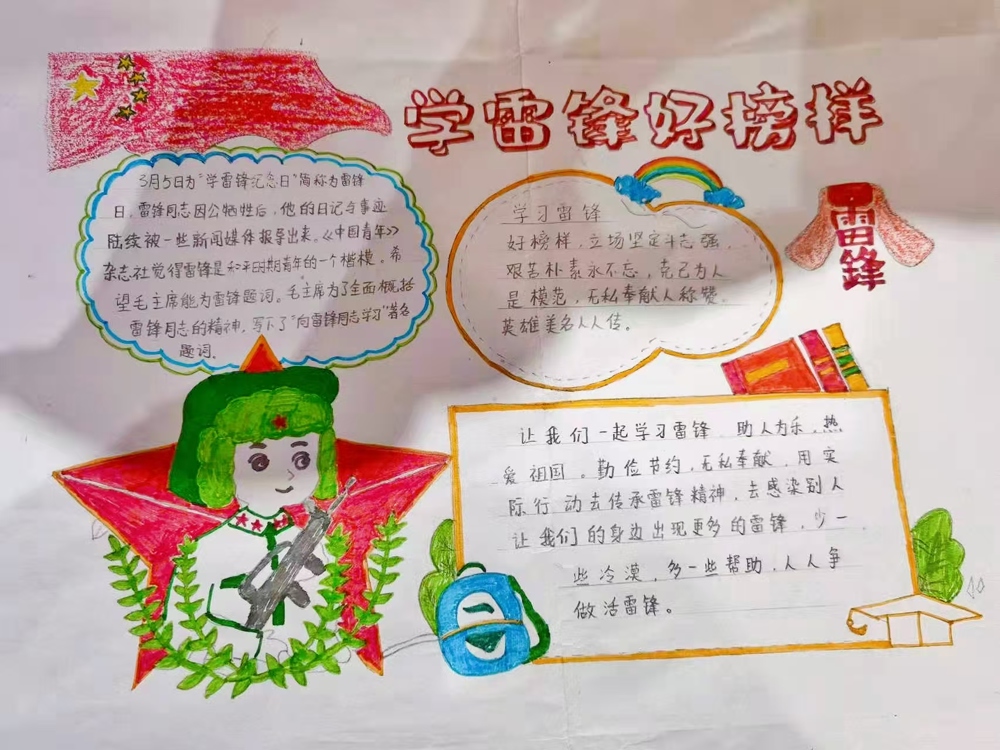 学雷锋好榜样
3月5日为“学雷锋纪念日”简称为雷锋
日。雷锋同志因公牺牲后，他的日记与事迹
陆续被一些新闻媒体报导出来。《中国青年》
杂志社觉得雷锋是和平时期青年的一个楷模。希
望毛主席能为雷锋题词。毛主席为了全面概括
雷锋同志的精神，写下了“向雷锋同志学习”著名
题词。
学习雷锋
好榜样，立场坚定斗志强，
艰苦朴素永不忘，克己为人
是模范，无私奉献人称赞。
英雄美名人人传。
雷锋
让我们一起学习雷锋 助人为乐，热
爱祖国。勤俭节约，无私奉献，用实
际行动去传承雷锋精神，去感染别人
让我们的身边出现更多的雷锋，少一
些冷漠，多一些帮助，人人争
做活雷锋。